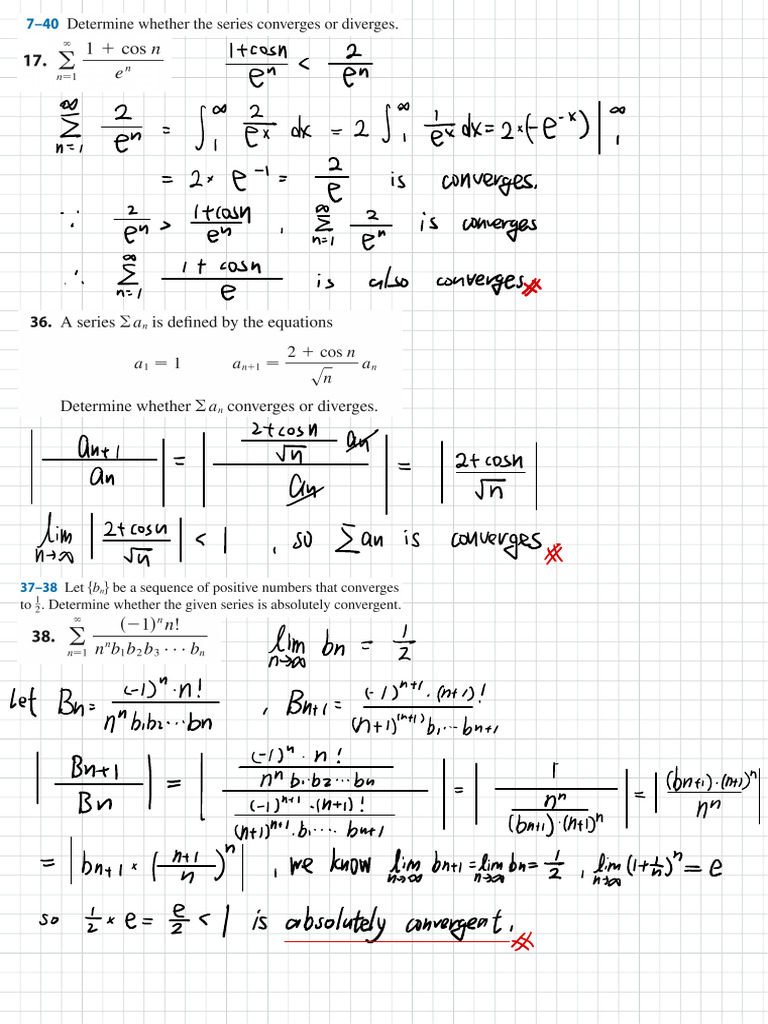 7–40 Determine whether the series converges or diverges.
17. $\sum_{n=1}^{\infty} \frac{1 + \cos n}{e^n}$ $\frac{1+\cos n}{e^n} < \frac{2}{e^n}$
$\sum_{n=1}^{\infty} \frac{2}{e^n} = \int_1^{\infty} \frac{2}{e^x} dx = 2 \int_1^{\infty} \frac{1}{e^x} dx = 2 \times (-e^{-x}) \Big|_1^{\infty}$
$= 2 \times e^{-1} = \frac{2}{e}$ is converges.
$\because \frac{2}{e^n} > \frac{1+\cos n}{e^n}$ , $\sum_{n=1}^{\infty} \frac{2}{e^n}$ is converges
$\therefore \sum_{n=1}^{\infty} \frac{1+\cos n}{e}$ is also converges
36. A series $\Sigma a_n$ is defined by the equations
$a_1 = 1$ $a_{n+1} = \frac{2 + \cos n}{\sqrt{n}} a_n$
Determine whether $\Sigma a_n$ converges or diverges.
$\left| \frac{a_{n+1}}{a_n} \right| = \left| \frac{\frac{2+\cos n}{\sqrt{n}} a_n}{a_n} \right| = \left| \frac{2+\cos n}{\sqrt{n}} \right|$
$\lim_{n \to \infty} \left| \frac{2+\cos n}{\sqrt{n}} \right| < 1$ , so $\sum a_n$ is converges
37–38 Let $\{b_n\}$ be a sequence of positive numbers that converges
to $\frac{1}{2}$. Determine whether the given series is absolutely convergent.
38. $\sum_{n=1}^{\infty} \frac{(-1)^n n!}{n^n b_1 b_2 b_3 \cdots b_n}$ $\lim_{n \to \infty} b_n = \frac{1}{2}$
let $B_n = \frac{(-1)^n \cdot n!}{n^n b_1 b_2 \cdots b_n}$ , $B_{n+1} = \frac{(-1)^{n+1} \cdot (n+1)!}{(n+1)^{(n+1)} b_1 \cdots b_{n+1}}$
$\left| \frac{B_{n+1}}{B_n} \right| = \left| \frac{\frac{(-1)^n \cdot n!}{n^n b_1 \cdot b_2 \cdots b_n}}{\frac{(-1)^{n+1} \cdot (n+1)!}{(n+1)^{n+1} \cdot b_1 \cdots b_{n+1}}} \right| = \left| \frac{1}{\frac{n^n}{(b_{n+1}) \cdot (n+1)^n}} \right| = \left| \frac{(b_{n+1}) \cdot (n+1)^n}{n^n} \right|$
$= \left| b_{n+1} \times \left( \frac{n+1}{n} \right)^n \right|$ , we know $\lim_{n \to \infty} b_{n+1} = \lim_{n \to \infty} b_n = \frac{1}{2}$ , $\lim_{n \to \infty} (1 + \frac{1}{n})^n = e$
so $\frac{1}{2} \times e = \frac{e}{2} < 1$ is absolutely convergent.